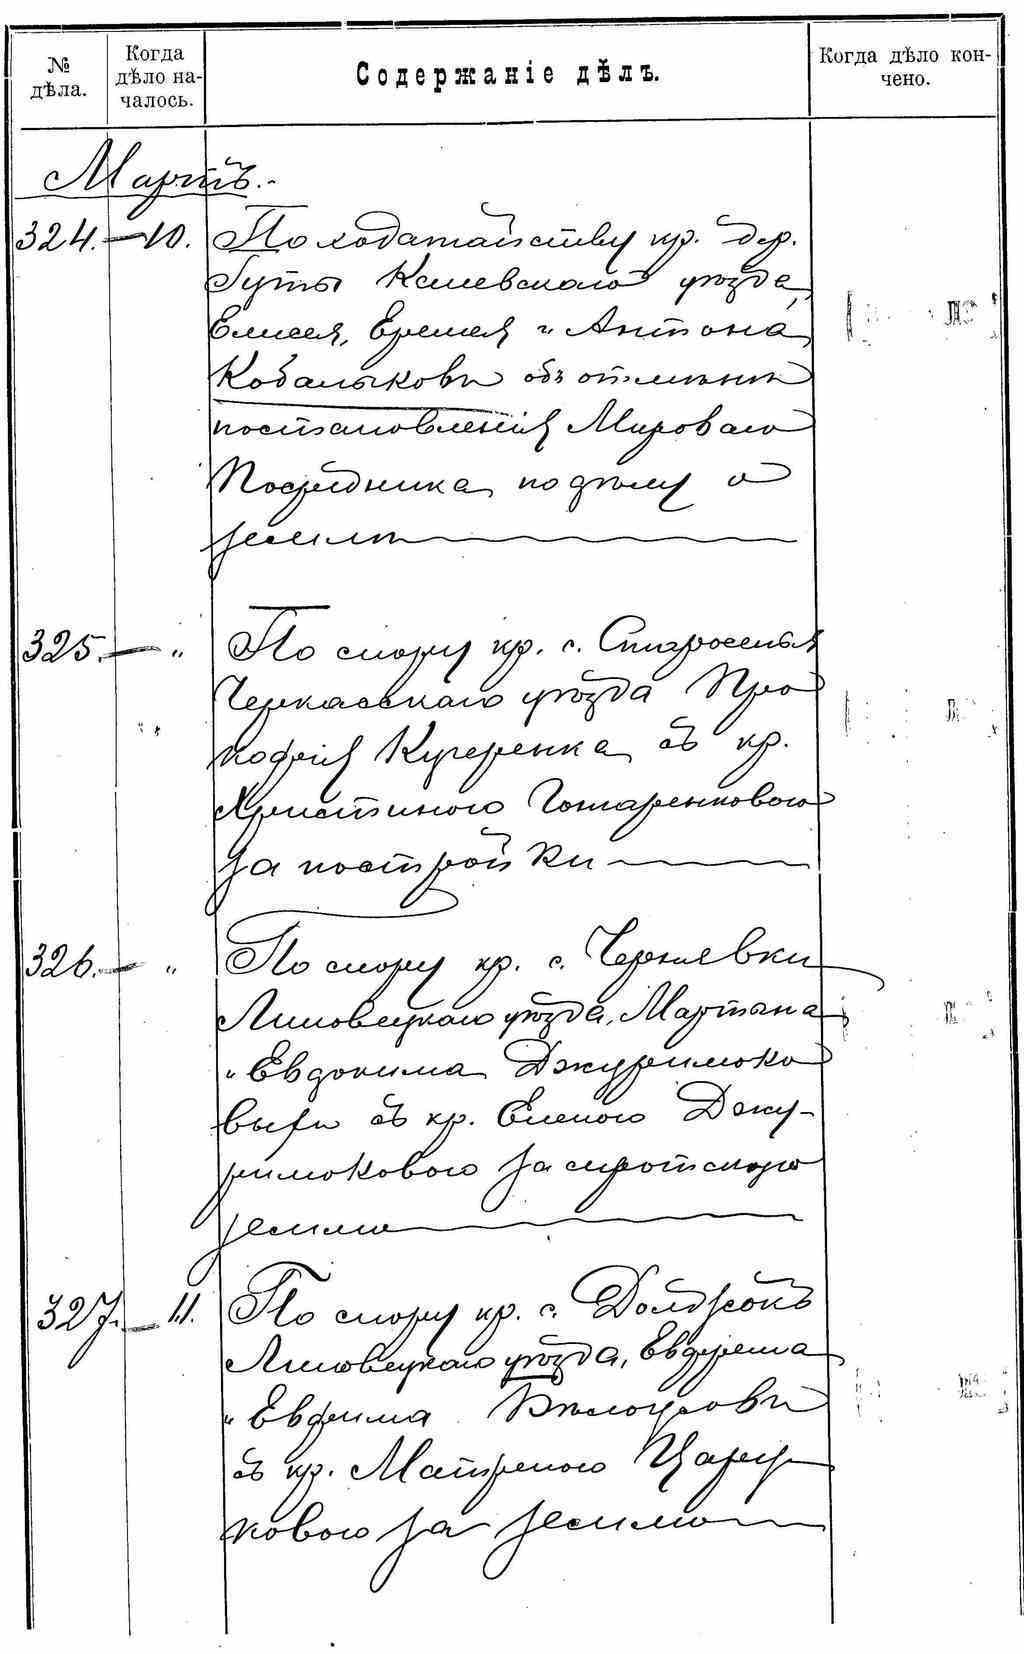 № дѣла.
Когда дѣло на-
чалось.
Содержаніе дѣлъ.
Когда дѣло кон-
чено.
Мартъ.
324. — 10. По ходатайству кр. дер.
Гуты Каневскаго уѣзда
Елисея, Еремея и Антона
Ковалыковъ объ отмѣнѣ
постановленія Мироваго
Посредника по дѣлу о
землѣ
325. — " По спору кр. с. Староселья
Черкасскаго уѣзда Про
кофія Кучеренка съ кр.
Христиною Гончаренковою
за постройки
326. — " По спору кр. с. Чернявки
Липовецкаго уѣзда, Мартына
и Евдокима Джуримоко
выхъ съ кр. Еленою Джу-
римоковою за спорную
землю
327. — 11. По спору кр. с.
Липовецкаго уѣзда, Ефрема
и Евфима Бѣлоусовъ
съ кр. Матреною Цару
ковою за землю